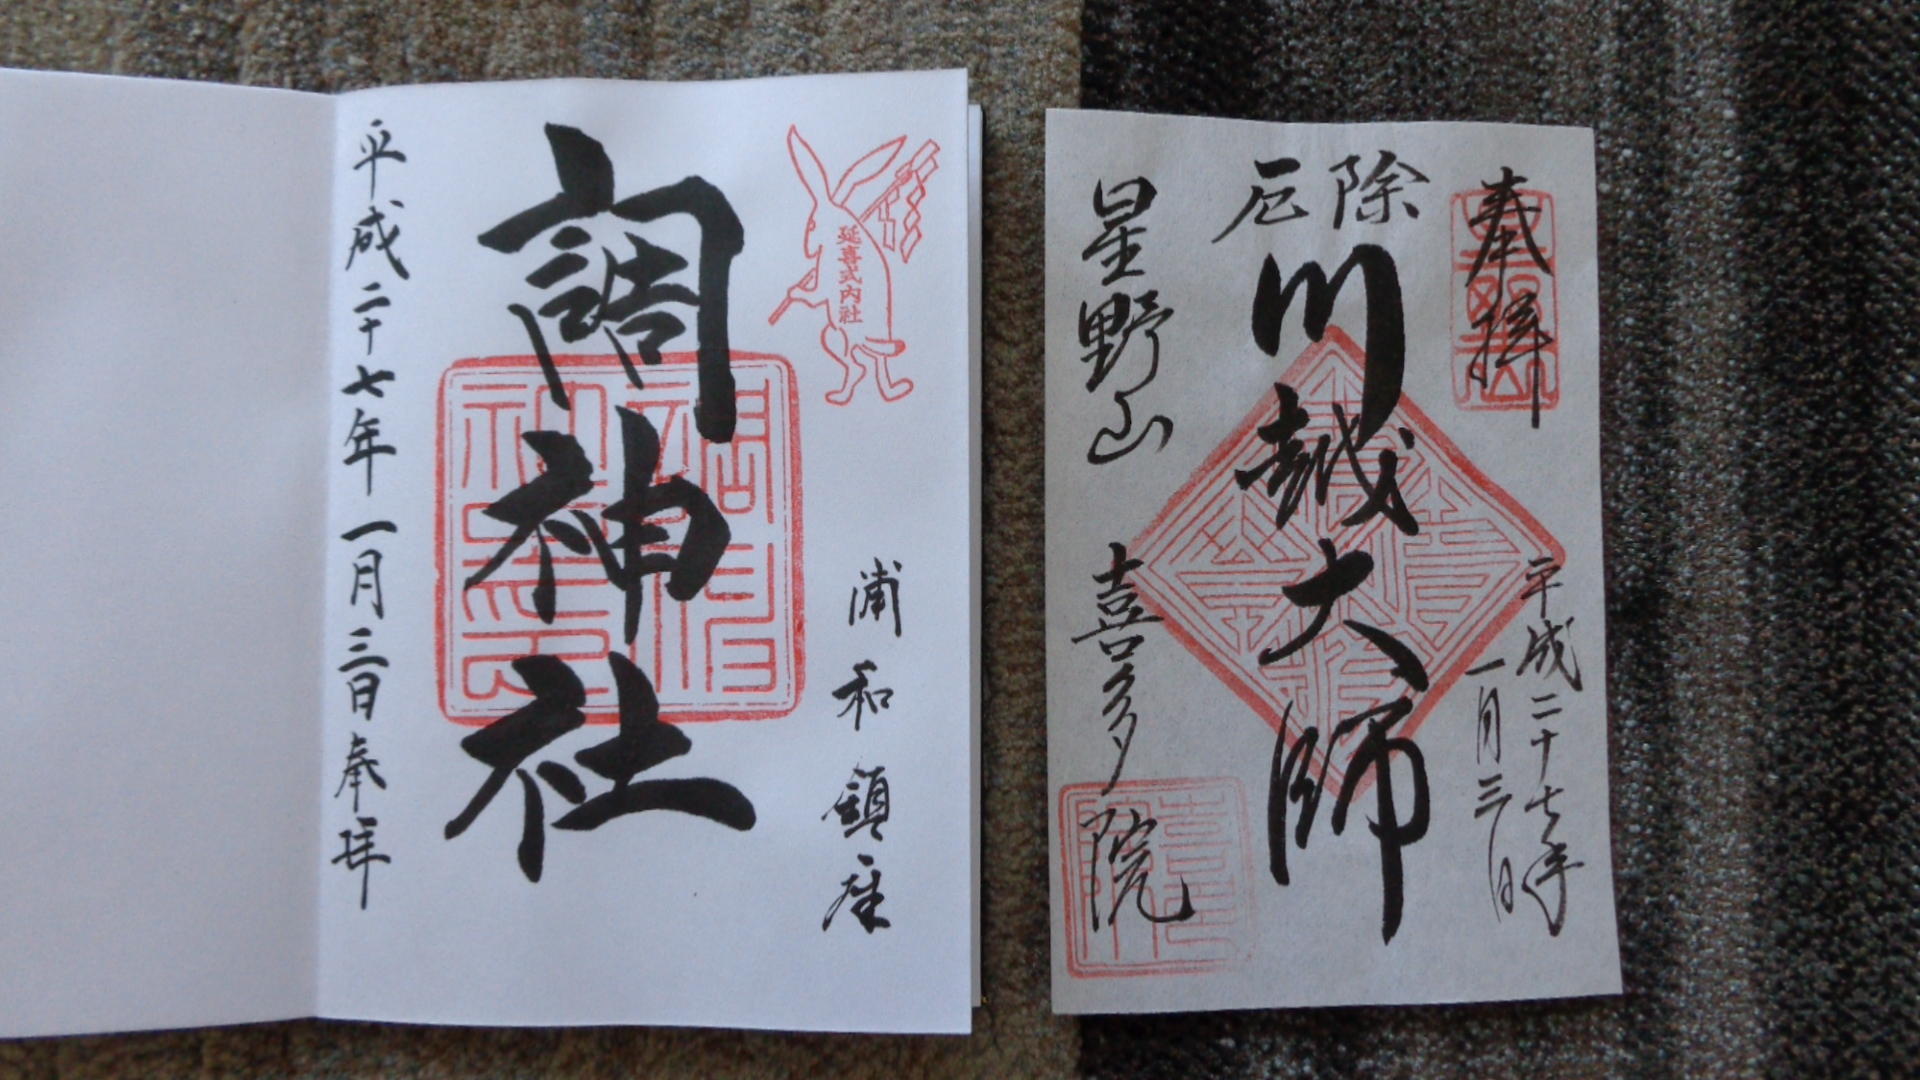 延喜式内社
浦和鎮座
調神社
平成二十七年一月三日奉拝
奉拝
平成二十七年
一月三日
厄除
川越大師
星野山
喜多院